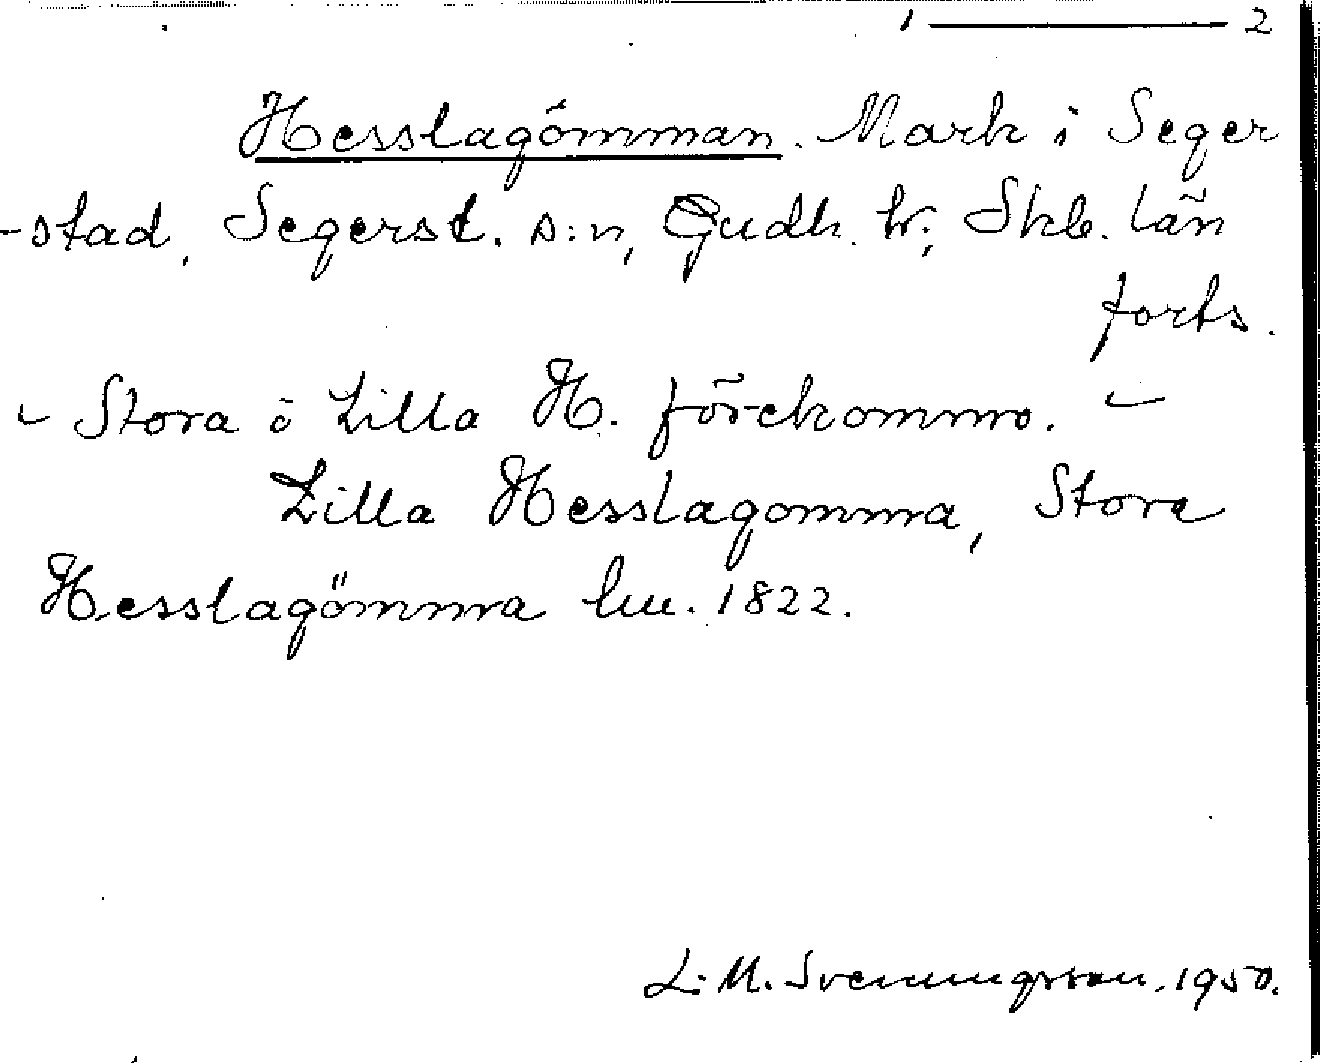 1 ——— 2
Hesslagömman. Mark i Seger
-stad, Segerst. s:n, Gudh. hr; Skb. län
forts.
- Stora o Lilla H. förekommo. -
Lilla Hesslagomma, Stora
Hesslagömma hu. 1822.
L. M. Svenungsson. 1950.